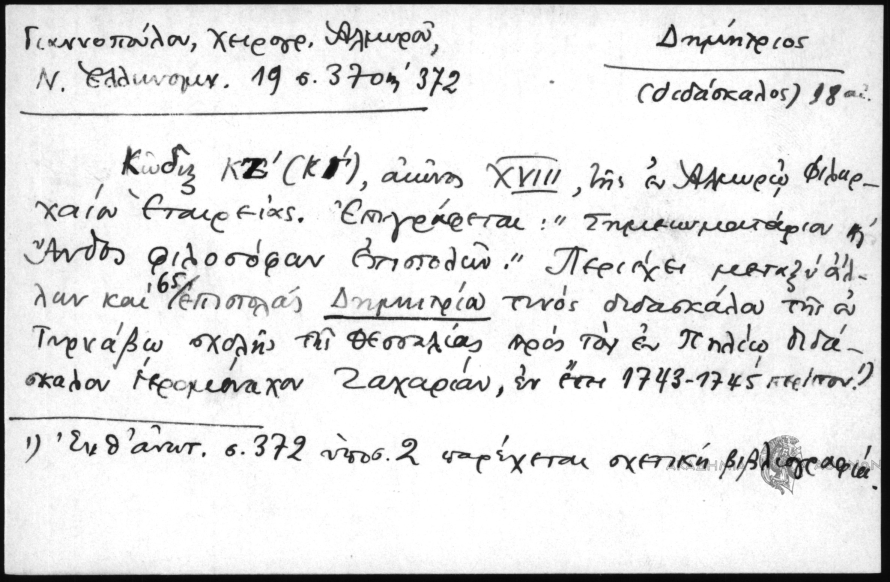 Γιαννοπούλου, χειρογρ. Ἁλμυροῦ,
Ν. Ἑλληνομν. 19 σ. 370 κἑ 372
Δημήτριος
(διδάσκαλος) 18 αἰ.
Κῶδιξ ΚΖ' (ΚΓ'), αἰῶνος XVIII, τῆς ἐν Ἁλμυρῷ Φιλαρ-
χαίου Ἑταιρείας. Ἐπιγράφεται: "Σημειωματάριον κὴ
Ἄνθος φιλοσόφων ἐπιστολῶν." Περιέχει μεταξὺ ἄλ-
λων καὶ 65 ἐπιστολάς Δημητρίου τινός διδασκάλου τῆς ἐν
Τυρνάβῳ σχολῆς τῆς Θεσσαλίας πρὸς τὸν ἐν Πηλίῳ διδά-
σκαλον ἱερομόναχον Ζαχαρίαν, ἐν ἔτει 1743-1745 περίπου.¹)
1) Ἐν θ' ἀνωτ. σ. 372 ὑποσ. 2 παρέχεται σχετικὴ βιβλιογραφία.